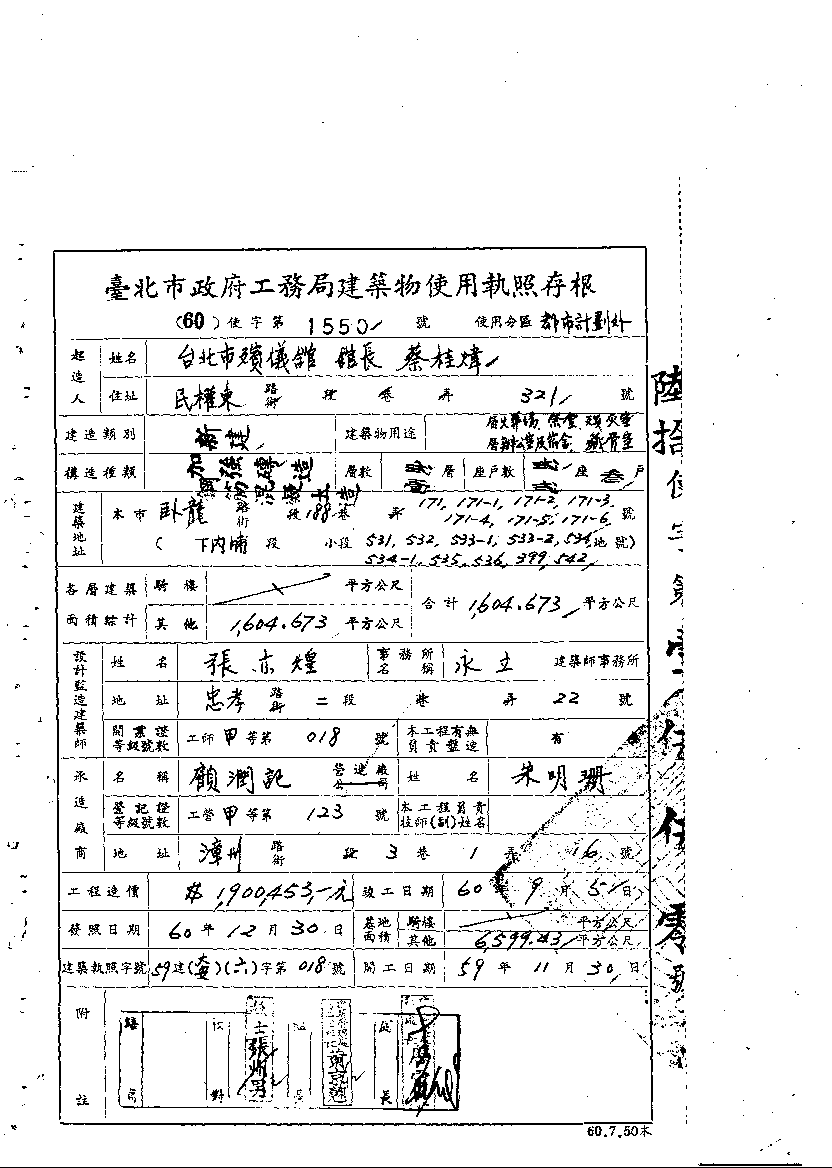 臺北市政府工務局建築物使用執照存根
(60)使字第1550號 使用分區 都市計劃外
起造人 姓名 台北市殯儀館 館長 蔡桂煒
住址 民權東 路街 段 巷 弄 321 號
建造類別 新建 建築物用途
構造種類 加強磚造 層數 層 座戶數 座 叁 戶
建築地址 本市 臥龍 路街 段 188 巷 弄 171, 171-1, 171-2, 171-3, 171-4, 171-5, 171-6 號
(下內埔 段 小段 531, 532, 533-1, 533-2, 534, 地號)
534-1, 535, 536, 399, 542,
各層建築面積綜計 騎樓 平方公尺 合計 1,604.673 平方公尺
其他 1,604.673 平方公尺
設計監造建築師 姓名 張亦煌 事務所名稱 永立 建築師事務所
地址 忠孝 路街 二段 巷 弄 22 號
開業證等級號數 工師甲等第 018 號 本工程有無負責監造 有
承造廠商 名稱 顧潤記 營造廠公司 姓名 朱明珊
登記證等級號數 工營甲等第 123 號 本工程負責技師(副)姓名
地址 漳州 路街 段 3 巷 1 弄 16 號
工程造價 $1,900,453,-元 竣工日期 60年9月5日
發照日期 60年12月30日 基地面積 騎樓 平方公尺
其他 6,599.43 平方公尺
建築執照字號 59建()(六)字第018號 開工日期 59年11月30日
附註
校對 長
陸拾使字第壹伍伍零號
60.7.50本